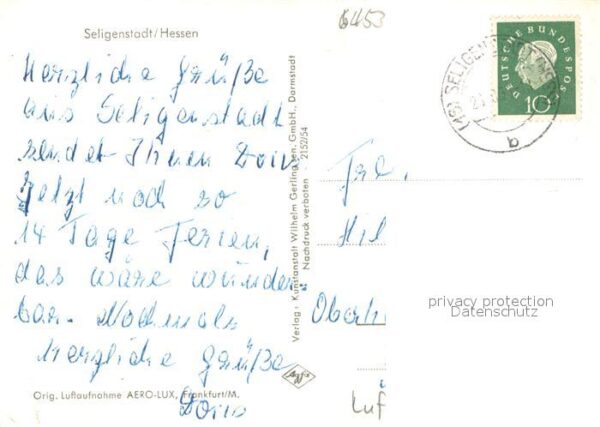 6453
Seligenstadt/Hessen
Herzliche Grüße
aus Seligenstadt
sendet Ihnen Doris
Jetzt noch so
14 Tage Ferien,
das wäre wunder-
bar. Nochmals
herzliche Grüße
Doris
Orig. Luftaufnahme AERO-LUX, Frankfurt/M.
Verlag: Kunstanstalt Wilhelm Gerling, GmbH., Darmstadt
Nachdruck verboten 2152/54
DEUTSCHE BUNDESPOST
10
(16) SELIGEN
a
Frl.
Hil
Oberh
privacy protection
Datenschutz